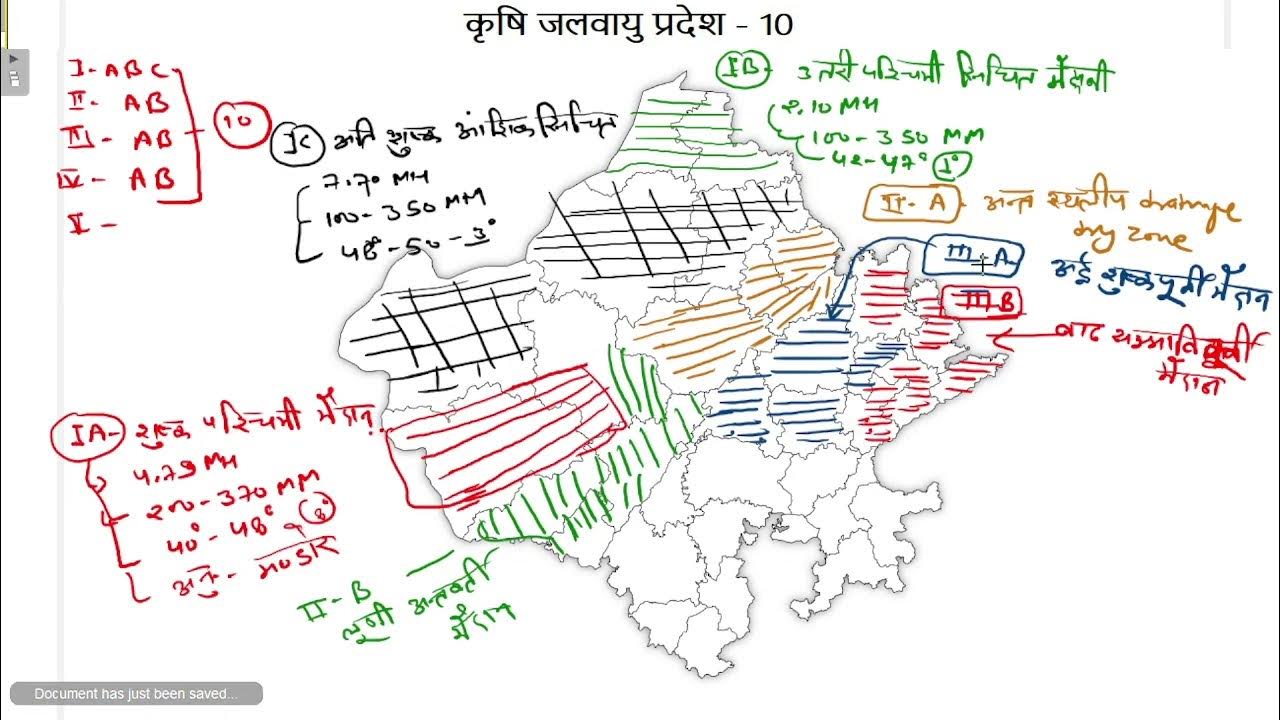 कृषि जलवायु प्रदेश - 10
I - A B C
II - AB
III - AB
IV - AB
V -
10
IC अति शुष्क आंशिक सिंचित
7.70 MH
100 - 350 MM
48° - 50 - 3°
IB - उतरी पश्चिमी सिंचित मैदानी
2.10 MH
100 - 350 MM
42 - 47° 1°
II - A - अन्त स्थलीय drainage
dry zone
III A -
अर्द्ध शुष्क पूर्वी मैदान
III B
बाढ सम्भावित पूर्वी
मैदान
IA - शुष्क पश्चिमी मैदान
4.79 MH
200 - 370 MM
40° - 48° 8°
अनु - मण्डोर
II - B
लूणी अन्तवर्ती
मैदान
Document has just been saved...